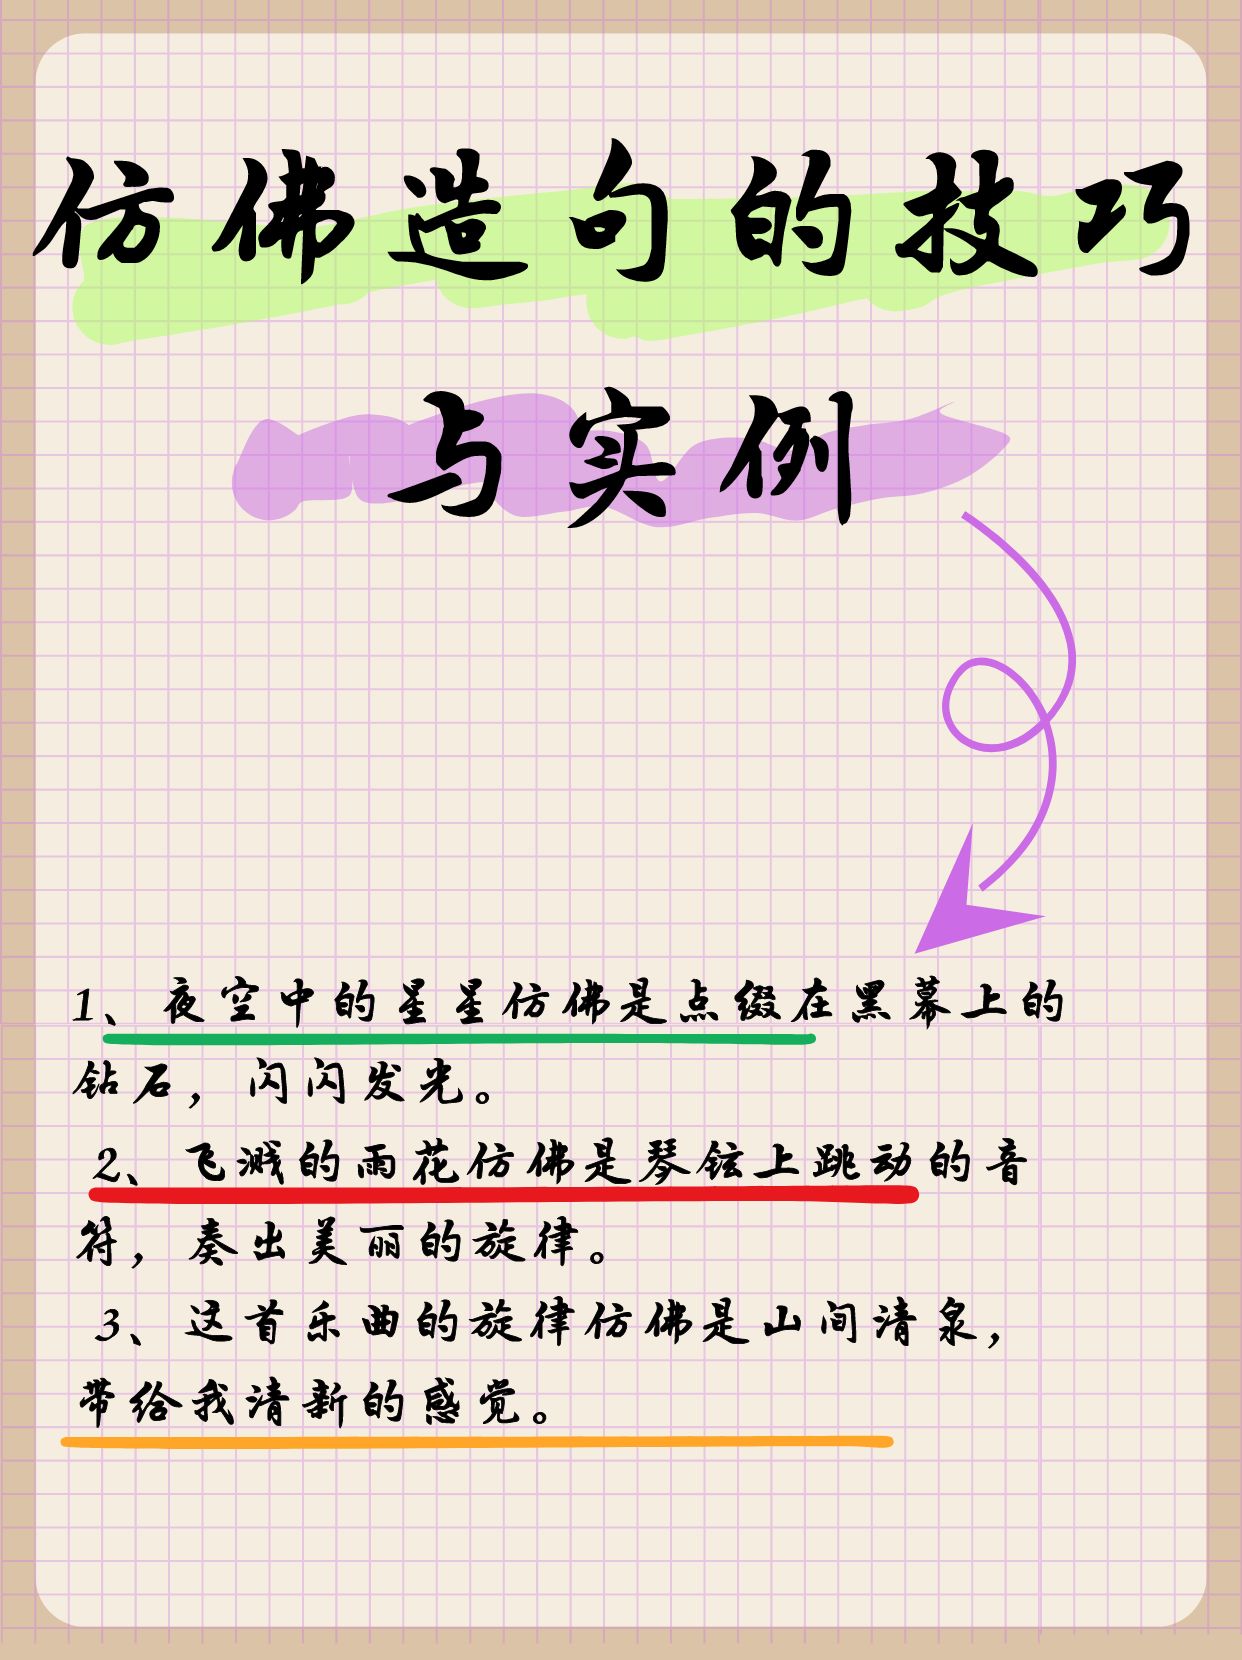 仿佛造句的技巧
与实例
1、夜空中的星星仿佛是点缀在黑幕上的
钻石，闪闪发光。
2、飞溅的雨花仿佛是琴铉上跳动的音
符，奏出美丽的旋律。
3、这首乐曲的旋律仿佛是山间清泉，
带给我清新的感觉。